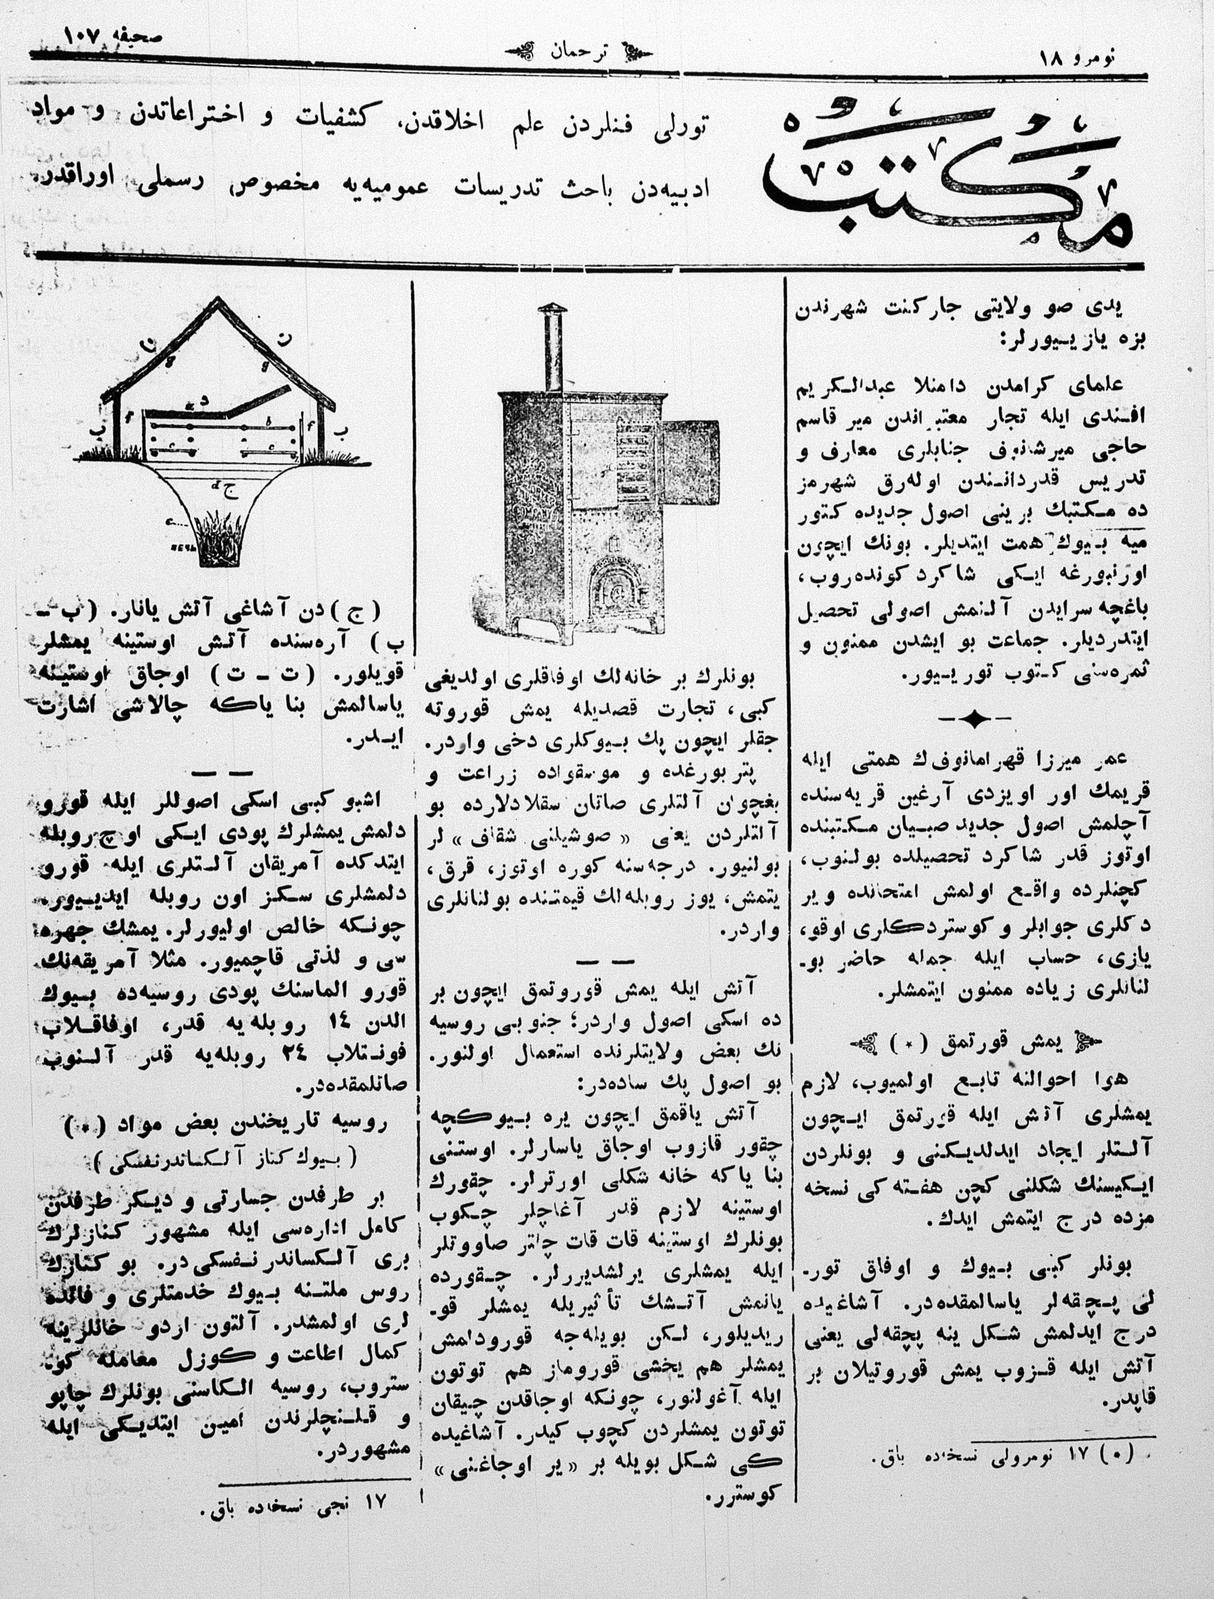 نومرو ١٨
ترجمان
صحیفه ١٠٧
مكتب
تورلی فنلردن علم اخلاقدن، كشفیات و اختراعاتدن و مواد
ادبیه‌دن باحث تدریسات عمومیه‌یه مخصوص رسملی اوراقدر.
یدی صو ولایتی جاركنت شهرندن
بزه یازیـیورلر:
علمای كرامدن دامنلا عبدالـكریم
افـندی ایله تجار معتبراندن میر قاسم
حاجی میرشانوف جنابلری معارف و
تدریس قدردانـندن اوله‌رق شهرمز
ده مـكتبك برینی اصول جدیده كتور
میه بـیوك همت ایتدیلر. بونك ایچون
اورنبورغه ایـكی شاكرد كونده‌روب،
باغچه سرایدن آلنمش اصولی تحصیل
ایتدردیلر. جماعت بو ایشدن ممنون و
ثمره‌سنی كـتوب توریـیور.
عمر میرزا قهرمانوف‌ك همتی ایله
قریمك اور اویزدی آرغین قریه‌سنده
آچلمش اصول جدید صبیان مـكتبنده
اوتوز قدر شاكرد تحصیلده بولنوب،
كچنلرده واقـع اولمش امتحانده ویر
دكلری جوابلر و كوستردـكلری اوقو،
یازی، حساب ایله جمله حاضر بوـ
لنانلری زیاده ممنون ایتمشلر.
یمش قورتمق (*)
هوا احوالنه تابـع اولمیوب، لازم
یمشلری آتش ایله قورتمق ایـچون
آلـتلر ایجاد ایدلدیـكنی و بونلردن
ایـكیسنك شكلنی كچن هفته كی نسخه
مزده درج ایتمش ایدك.
بونلر كبی بـیوك و اوفاق تورـ
لی پـچقه‌لر یاسالمقده‌در. آشاغیده
درج ایدلمش شـكل ینه پچقه‌لی یعنی
آتش ایله قـزوب یمش قوروتیلان بر
قاپدر.
(*) ١٧ نومرولی نسخه‌ده باق.
بونلرك بر خانه‌لك اوفاقلری اولدیغی
كبی، تجارت قصدیله یمش قوروته
جقلر ایچون پك بـیوكلری دخی واردر.
پتربورغده و موسقواده زراعت و
بغچوان آلتلری صاتان سقلادلارده بو
آلتلردن یعنی «صوشیلنی شقاف» لر
بولنیور. درجه‌سنه كوره اوتوز، قرق،
یتمش، یوز روبله‌لك قیمتنده بولنانلری
واردر.
آتش ایله یمش قوروتمق ایچون بر
ده اسكی اصول واردر؛ جنوبی روسیه
نك بعض ولایتلرنده استعمال اولنور.
بو اصول پك ساده‌در:
آتش یاقمق ایچون یره بـیوكـچه
چقور قازوب اوجاق یاسارلر. اوستنی
بنا یاكه خانه شكلی اورترلر. چقورك
اوستینه لازم قدر آغاچلر چـكوب
بونلرك اوستینه قات قات چاتر صاووتلر
ایله یمشلری یرلشدیررلر. چـقورده
یانمش آتـشك تأثیریله یمشلر قوـ
ریدیلور، لـكن بویله‌جه قورودلمش
یمشلر هم یخشی قوروماز هم توتون
ایله آغولنور، چونكه اوجاقدن چـیقان
توتون یمشلردن كچوب كیدر. آشاغیده
ـكی شـكل بویله بر «یر اوجاغنی»
كوسترر.
(ج) دن آشاغی آتش یانار. (ب ـ
ب) آره‌سنده آتش اوستینه یمشلر
قویلور. (ت ـ ت) اوجاق اوستینه
یاسالمش بنا یاـكه چالاشی اشارت
ایـدر.
اشبو كبی اسكی اصوللر ایله قورو
دلمش یمشلرك پودی ایـكی اوچ روبله
ایتدكده آمریقان آلـتلری ایله قورو
دلمشلری سـكز اون روبله ایدیـیور.
چونـكه خالص اولیورلر. یمشك چهره
سی و لذتی قاچمیور. مثلا آمریقه‌نك
قورو الماسنك پودی روسیه‌ده بـیوك
الدن ١٤ روبله‌یه قدر، اوفاقـلاب
فونـتلاب ٢٤ روبله‌یه قدر آلـنوب
صاتلمقده‌در.
روسیه تاریخندن بعض مواد (*)
(بـیوك كناز آلـكساندرنفسكی)
بر طرفدن جسارتی و دیـكر طرفدن
كامل اداره‌سی ایله مشهور كنازلرك
بری آلـكساندر نـفسكی‌در. بو كنازك
روس ملتـنه بـیوك خدمتلری و فائده
لری اولمشدر. آلتون اردو خانلرینه
كمال اطاعت و كوزل معامله كوـ
ستروب، روسیه الـكاسنی بونلرك چاپو
و قلـنچلرندن امین ایتدیـكی ایله
مشهوردر.
١٧ نجی نسخه‌ده باق.